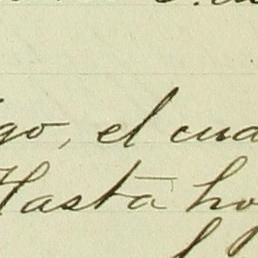 go, el cua
Hasta ho